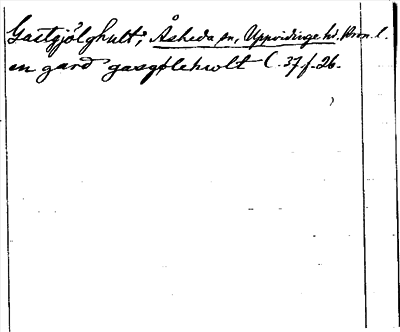 Gastgjölghult; Åsheda sn, Uppvidinge hd. Kron. l.
en gard gasgølehwlt C. 37. f. 26.